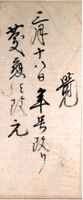 覚
二月十八日年号改り
慶應与改元